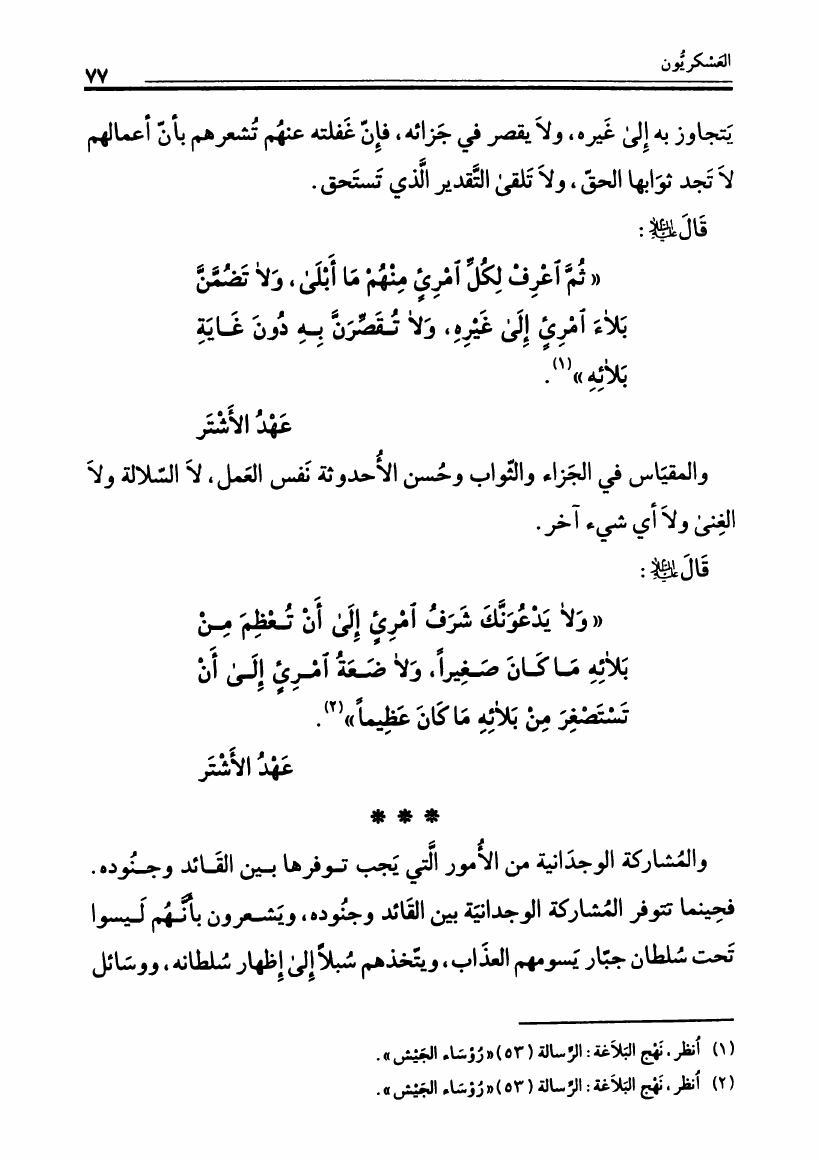 العَسْكريُّون
٧٧
يَتجاوز به إِلىٰ غَيره، ولاَ يقصر في جَزائه، فإِنّ غَفلته عنهُم تُشعرهم بأنّ أعمالهم
لاَ تَجد ثوَابها الحقّ، ولاَ تَلقىٰ التَّقدير الَّذي تَستَحق.
قَالَ ﷷ:
« ثُمَّ ٱعْرِفْ لِكُلِّ ٱمْرِئٍ مِنْهُمْ مَا أَبْلَىٰ، وَلاٰ تَضُمَّنَّ
بَلاٰءَ ٱمْرِئٍ إِلَىٰ غَيْرِهِ، وَلاٰ تُـقَصِّرَنَّ بِـهِ دُونَ غَـايَةِ
بَلاٰئِهِ »(١).
عَهْدُ الأَشْتَر
والمقيَاس في الجَزاء والثّواب وحُسن الأُحدوثة نَفس العَمل، لاَ السّلالة ولاَ
الغِنىٰ ولاَ أي شيء آخر.
قَالَ ﷷ:
« وَلاٰ يَدْعُوَنَّكَ شَرَفُ ٱمْرِئٍ إِلَىٰ أَنْ تُـعْظِمَ مِـنْ
بَلاٰئِهِ مَـا كَـانَ صَـغِيراً، وَلاٰ ضَـعَةُ ٱمْـرِئٍ إِلَـىٰ أَنْ
تَسْتَصْغِرَ مِنْ بَلاٰئِهِ مَا كَانَ عَظِيماً »(٢).
عَهْدُ الأَشْتَر
* * *
والمُشاركة الوجدَانية من الأُمور الَّتي يَجب تـوفرها بـين القَـائد وجـنُوده.
فحِينما تتوفر المُشاركة الوجدانيَة بين القَائد وجنُوده، ويَشـعرون بأنَّـهُم لَـيسوا
تَحت سُلطان جبّار يَسومهم العذَاب، ويتّخذهم سُبلاً إِلىٰ إِظهار سُلطانه، ووسَائل
(١) اُنظر، نَهْج البَلاَغة: الرِّسالة (٥٣) «رُؤسَاء الجَيْش».
(٢) اُنظر، نَهْج البَلاَغة: الرِّسالة (٥٣) «رُؤسَاء الجَيْش».